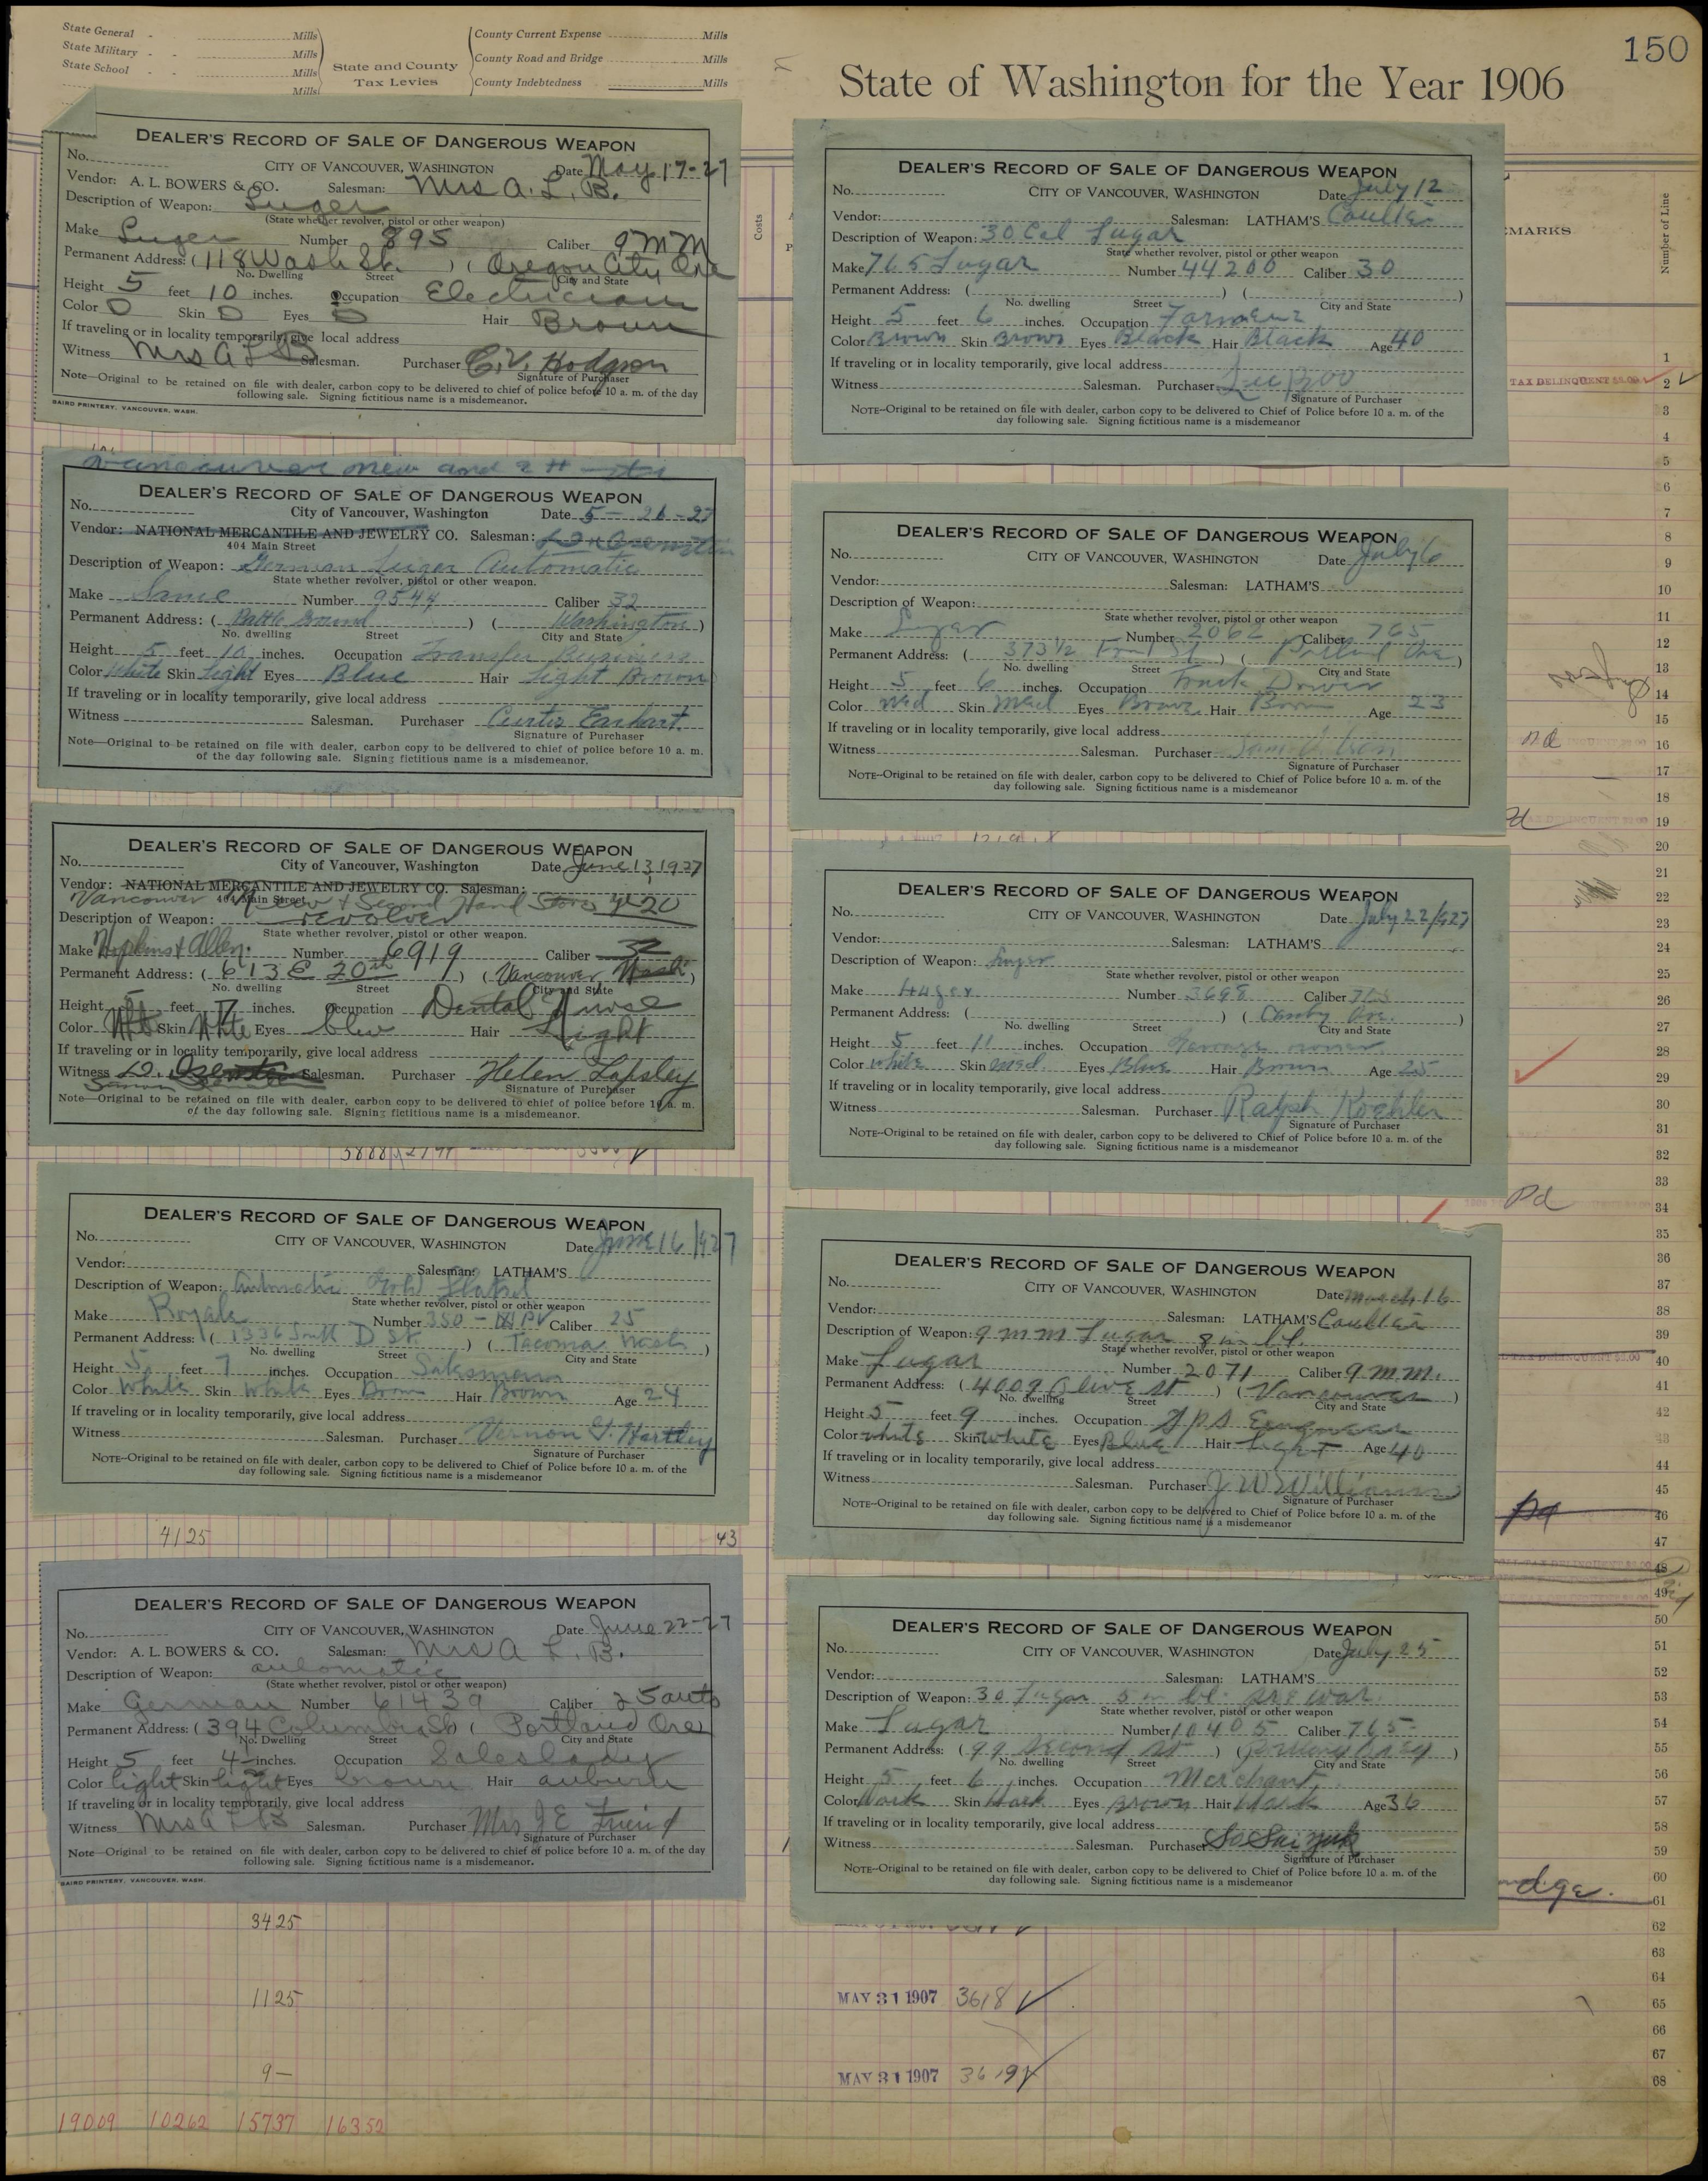 State General - Mills
State Military - - Mills
State School - - Mills
Mills
State and County
Tax Levies
County Current Expense Mills
County Road and Bridge Mills
County Indebtedness Mills
150
State of Washington for the Year 1906
DEALER'S RECORD OF SALE OF DANGEROUS WEAPON
No.
CITY OF VANCOUVER, WASHINGTON Date May 17-27
Vendor: A. L. BOWERS & CO. Salesman: Mrs A. L. B.
Description of Weapon: Luger
(State whether revolver, pistol or other weapon)
Make Luger Number 895 Caliber 9 MM
Permanent Address: (118 Wash St. ) ( Oregon City Ore
No. Dwelling Street City and State
Height 5 feet 10 inches. Occupation Electrician
Color D Skin D Eyes D Hair Brown
If traveling or in locality temporarily, give local address
Witness Mrs A L B Salesman. Purchaser C. V. Hodgson
Signature of Purchaser
Note—Original to be retained on file with dealer, carbon copy to be delivered to chief of police before 10 a. m. of the day
following sale. Signing fictitious name is a misdemeanor.
BAIRD PRINTERY, VANCOUVER, WASH.
Vancouver new and 2
DEALER'S RECORD OF SALE OF DANGEROUS WEAPON
No.
City of Vancouver, Washington Date 5-26-27
Vendor: NATIONAL MERCANTILE AND JEWELRY CO. Salesman:
404 Main Street
Description of Weapon: German Luger Automatic
State whether revolver, pistol or other weapon.
Make Same Number 9544 Caliber 32
Permanent Address: ( Battle Ground ) ( Washington )
No. dwelling Street City and State
Height 5 feet 10 inches. Occupation Transfer Business
Color White Skin Light Eyes Blue Hair Light Brown
If traveling or in locality temporarily, give local address
Witness Salesman. Purchaser Curtis Earhart.
Signature of Purchaser
Note—Original to be retained on file with dealer, carbon copy to be delivered to chief of police before 10 a. m.
of the day following sale. Signing fictitious name is a misdemeanor.
DEALER'S RECORD OF SALE OF DANGEROUS WEAPON
No.
City of Vancouver, Washington Date June 13, 1927
Vendor: NATIONAL MERCANTILE AND JEWELRY CO. Salesman:
404 Main Street
Vancouver New & Second Hand Store
Description of Weapon: revolver
State whether revolver, pistol or other weapon.
Make Hopkins & Allen. Number 6919 Caliber 32
Permanent Address: ( 613 E 20th ) ( Vancouver, Wash )
No. dwelling Street City and State
Height 5 feet 7 inches. Occupation Dental Nurse
Color Skin White Eyes blue Hair Light
If traveling or in locality temporarily, give local address
Witness Salesman. Purchaser Helen Lapsley
Signature of Purchaser
Note—Original to be retained on file with dealer, carbon copy to be delivered to chief of police before 10 a. m.
of the day following sale. Signing fictitious name is a misdemeanor.
DEALER'S RECORD OF SALE OF DANGEROUS WEAPON
No.
CITY OF VANCOUVER, WASHINGTON Date June 16/927
Vendor: Salesman: LATHAM'S
Description of Weapon: Automatic
State whether revolver, pistol or other weapon
Make Royale Number 350 Caliber 25
Permanent Address: ( 1336 South D St. ) ( Tacoma Wash )
No. dwelling Street City and State
Height 5 feet 7 inches. Occupation Salesman
Color White Skin White Eyes Brown Hair Brown Age 24
If traveling or in locality temporarily, give local address
Witness Salesman. Purchaser Vernon G. Hartley
Signature of Purchaser
NOTE--Original to be retained on file with dealer, carbon copy to be delivered to Chief of Police before 10 a. m. of the
day following sale. Signing fictitious name is a misdemeanor
4125 43
DEALER'S RECORD OF SALE OF DANGEROUS WEAPON
No.
CITY OF VANCOUVER, WASHINGTON Date June 22-27
Vendor: A. L. BOWERS & CO. Salesman: Mrs A L. B.
Description of Weapon: automatic
(State whether revolver, pistol or other weapon)
Make German Number 61439 Caliber 25 auto
Permanent Address: ( 394 Columbia St ) ( Portland Ore
No. Dwelling Street City and State
Height 5 feet 4 inches. Occupation Saleslady
Color light Skin light Eyes brown Hair auburn
If traveling or in locality temporarily, give local address
Witness Mrs A L B Salesman. Purchaser Mrs J E Friend
Signature of Purchaser
Note—Original to be retained on file with dealer, carbon copy to be delivered to chief of police before 10 a. m. of the day
following sale. Signing fictitious name is a misdemeanor.
BAIRD PRINTERY, VANCOUVER, WASH.
3425
1125
9—
19009 10262 15737 16352
Costs
DEALER'S RECORD OF SALE OF DANGEROUS WEAPON
No.
CITY OF VANCOUVER, WASHINGTON Date July 12
Vendor: Salesman: LATHAM'S Coulter
Description of Weapon: 30 Cal Lugar
State whether revolver, pistol or other weapon
Make 765 Lugar Number 44200 Caliber 30
Permanent Address: ( ) ( )
No. dwelling Street City and State
Height 5 feet 6 inches. Occupation Farmer
Color Brown Skin Brown Eyes Black Hair Black Age 40
If traveling or in locality temporarily, give local address
Witness Salesman. Purchaser
Signature of Purchaser
NOTE--Original to be retained on file with dealer, carbon copy to be delivered to Chief of Police before 10 a. m. of the
day following sale. Signing fictitious name is a misdemeanor
DEALER'S RECORD OF SALE OF DANGEROUS WEAPON
No.
CITY OF VANCOUVER, WASHINGTON Date July 6
Vendor: Salesman: LATHAM'S
Description of Weapon:
State whether revolver, pistol or other weapon
Make Luger Number 2062 Caliber 765
Permanent Address: ( 373 1/2 Front St ) ( Portland Ore )
No. dwelling Street City and State
Height 5 feet 6 inches. Occupation Truck Driver
Color Med Skin Med Eyes Brown Hair Brown Age 23
If traveling or in locality temporarily, give local address
Witness Salesman. Purchaser
Signature of Purchaser
NOTE--Original to be retained on file with dealer, carbon copy to be delivered to Chief of Police before 10 a. m. of the
day following sale. Signing fictitious name is a misdemeanor
DEALER'S RECORD OF SALE OF DANGEROUS WEAPON
No.
CITY OF VANCOUVER, WASHINGTON Date July 22/927
Vendor: Salesman: LATHAM'S
Description of Weapon: Luger
State whether revolver, pistol or other weapon
Make Number 3698 Caliber 765
Permanent Address: ( ) ( Canby Ore. )
No. dwelling Street City and State
Height 5 feet 11 inches. Occupation Garage owner
Color White Skin med. Eyes Blue Hair Brown Age 25
If traveling or in locality temporarily, give local address
Witness Salesman. Purchaser Ralph Koehler
Signature of Purchaser
NOTE--Original to be retained on file with dealer, carbon copy to be delivered to Chief of Police before 10 a. m. of the
day following sale. Signing fictitious name is a misdemeanor
DEALER'S RECORD OF SALE OF DANGEROUS WEAPON
No.
CITY OF VANCOUVER, WASHINGTON Date March 16
Vendor: Salesman: LATHAM'S Coulter
Description of Weapon: 9 mm Lugar 8 in bl.
State whether revolver, pistol or other weapon
Make Lugar Number 2071 Caliber 9 mm.
Permanent Address: ( 4009 Olive St ) ( Vancouver )
No. dwelling Street City and State
Height 5 feet 9 inches. Occupation Engineer
Color white Skin white Eyes Blue Hair Light Age 40
If traveling or in locality temporarily, give local address
Witness Salesman. Purchaser J W Williams
Signature of Purchaser
NOTE--Original to be retained on file with dealer, carbon copy to be delivered to Chief of Police before 10 a. m. of the
day following sale. Signing fictitious name is a misdemeanor
DEALER'S RECORD OF SALE OF DANGEROUS WEAPON
No.
CITY OF VANCOUVER, WASHINGTON Date July 25
Vendor: Salesman: LATHAM'S
Description of Weapon: 30 Lugar 5 in bl. pre war.
State whether revolver, pistol or other weapon
Make Lugar Number 10405 Caliber 765
Permanent Address: ( 99 Second St ) ( )
No. dwelling Street City and State
Height 5 feet 6 inches. Occupation Merchant
Color Dark Skin Dark Eyes Brown Hair Dark Age 36
If traveling or in locality temporarily, give local address
Witness Salesman. Purchaser
Signature of Purchaser
NOTE--Original to be retained on file with dealer, carbon copy to be delivered to Chief of Police before 10 a. m. of the
day following sale. Signing fictitious name is a misdemeanor
MAY 31 1907 3618
MAY 31 1907 3619
MARKS
Number of Line
1
TAX DELINQUENT 2
3
4
5
6
7
8
9
10
11
12
13
14
15
16
17
18
19
20
21
22
23
24
25
26
27
28
29
30
31
32
33
Pd
34
35
36
37
38
39
40
41
42
43
44
45
pd 46
47
48
49
50
51
52
53
54
55
56
57
58
59
60
61
62
63
64
65
66
67
68